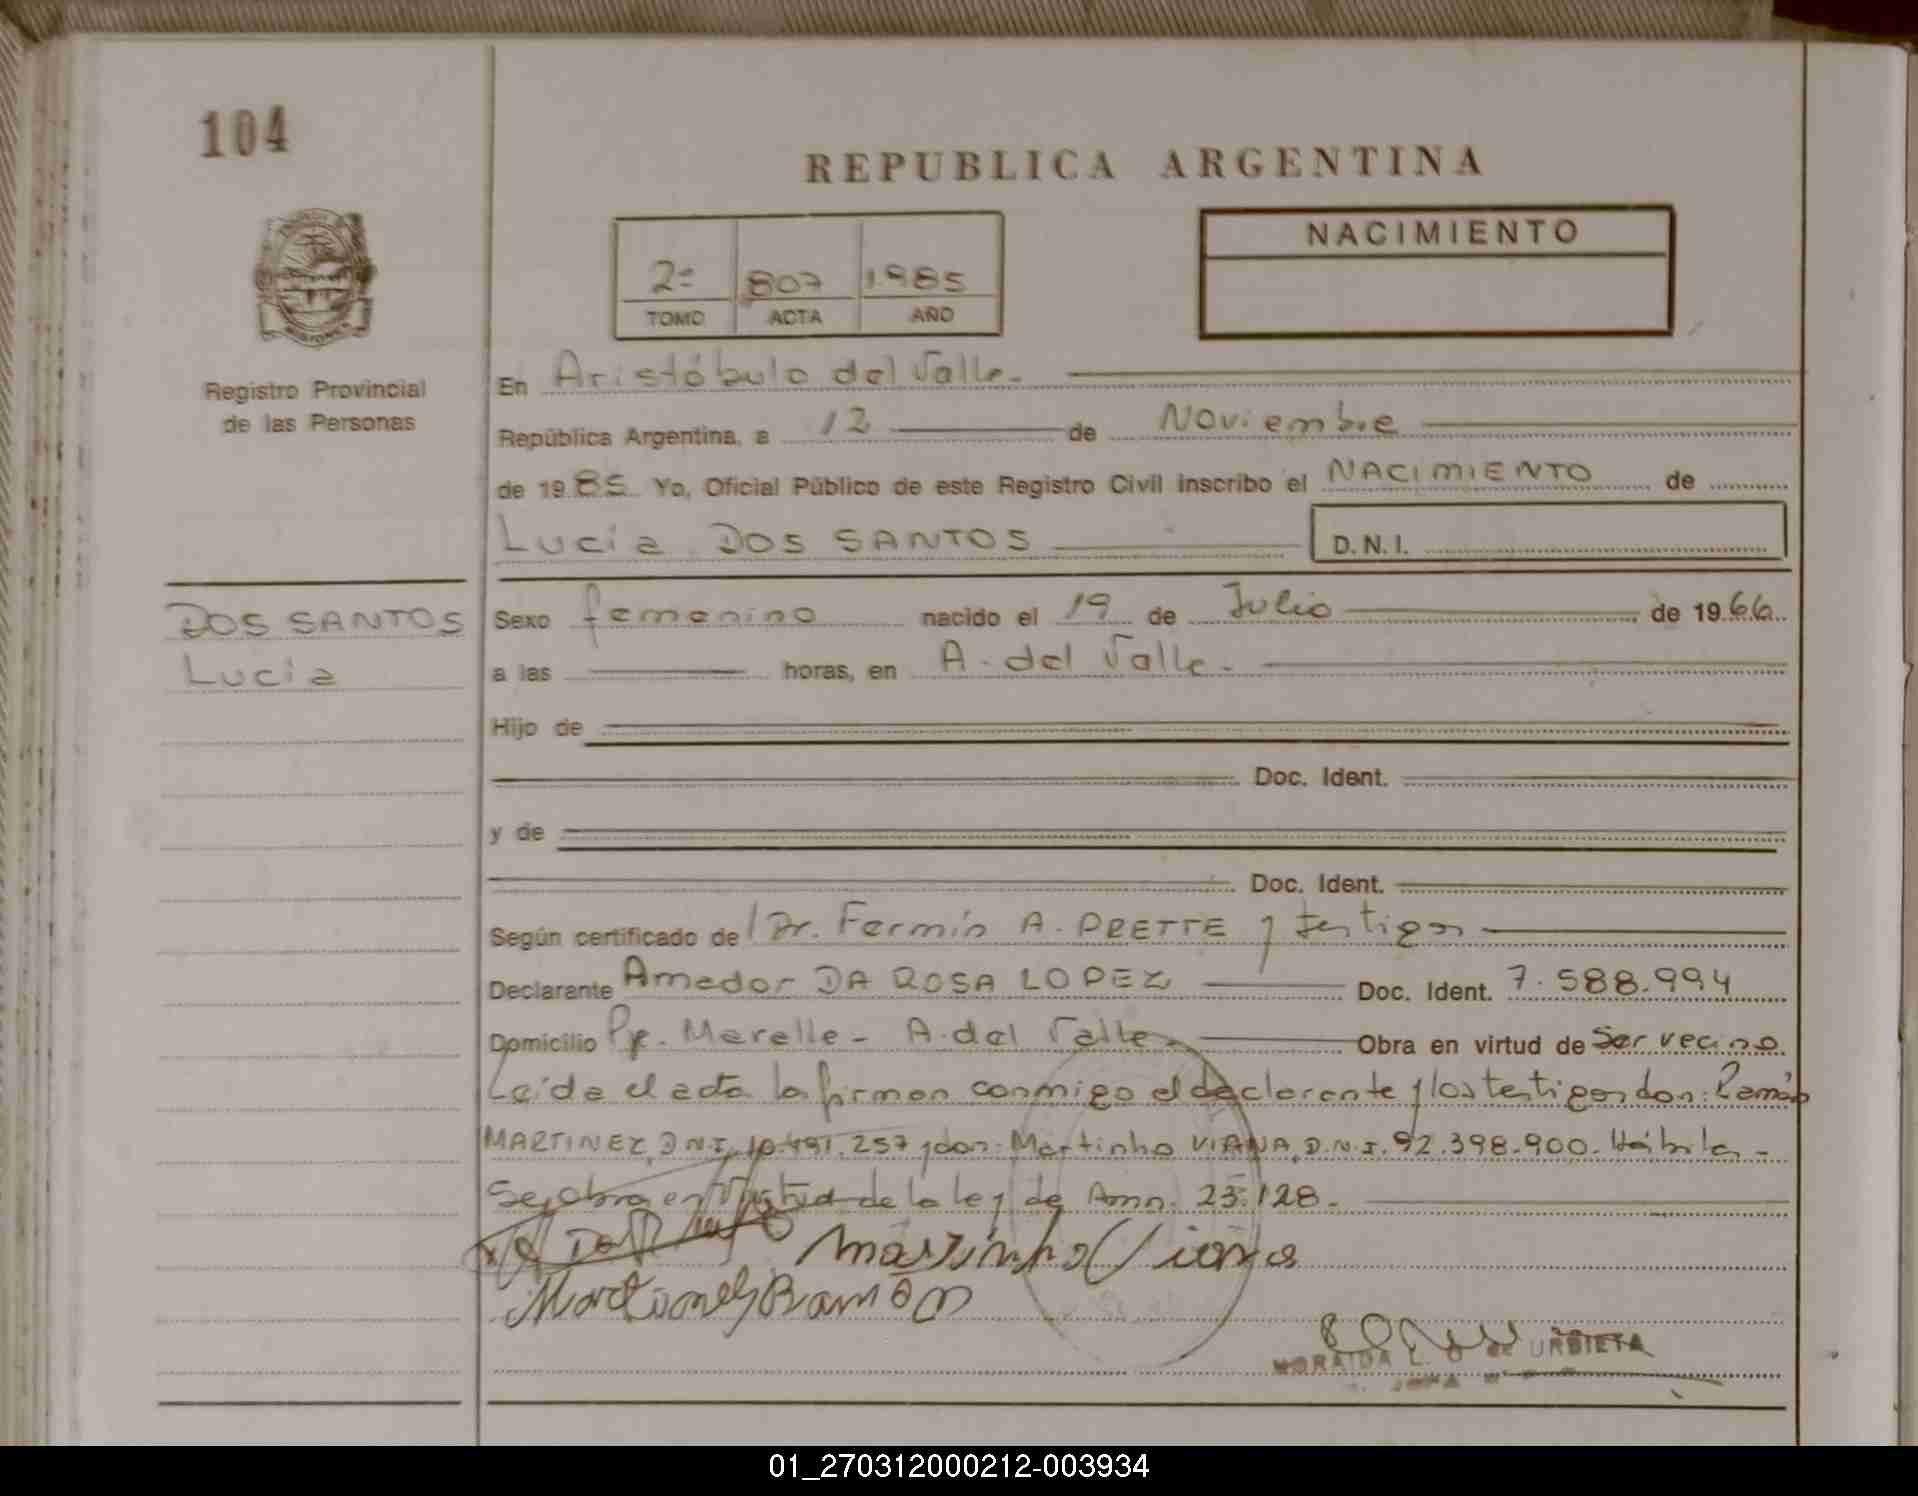 104
REPUBLICA ARGENTINA
NACIMIENTO
2º 807 1.985
TOMO ACTA AÑO
Registro Provincial
de las Personas
En Aristóbulo del Valle.-
República Argentina, a 12 de Noviembre
de 1985 Yo, Oficial Público de este Registro Civil inscribo el NACIMIENTO de
Lucía DOS SANTOS D.N.I.
DOS SANTOS
Lucía
Sexo femenino nacido el 19 de Julio de 1966
a las horas, en A. del Valle.-
Hijo de
Doc. Ident.
y de
Doc. Ident.
Según certificado de Dr. Fermín A. PRETTE y testigos
Declarante Amador DA ROSA LOPEZ Doc. Ident. 7.588.994
Domicilio Pje. Marelle - A. del Valle Obra en virtud de Ser vecino
Leída el acta la firman conmigo el declarante y los testigos don: Ramón
MARTINEZ, D.N.I. 10.491.257 y don: Martinho VIANA, D.N.I. 92.398.900. Hábiles -
Se obra en virtud de la ley de Amn. 23.128.-
Martinho Viana
Martinez Ramón
URBIETA
01_270312000212-003934